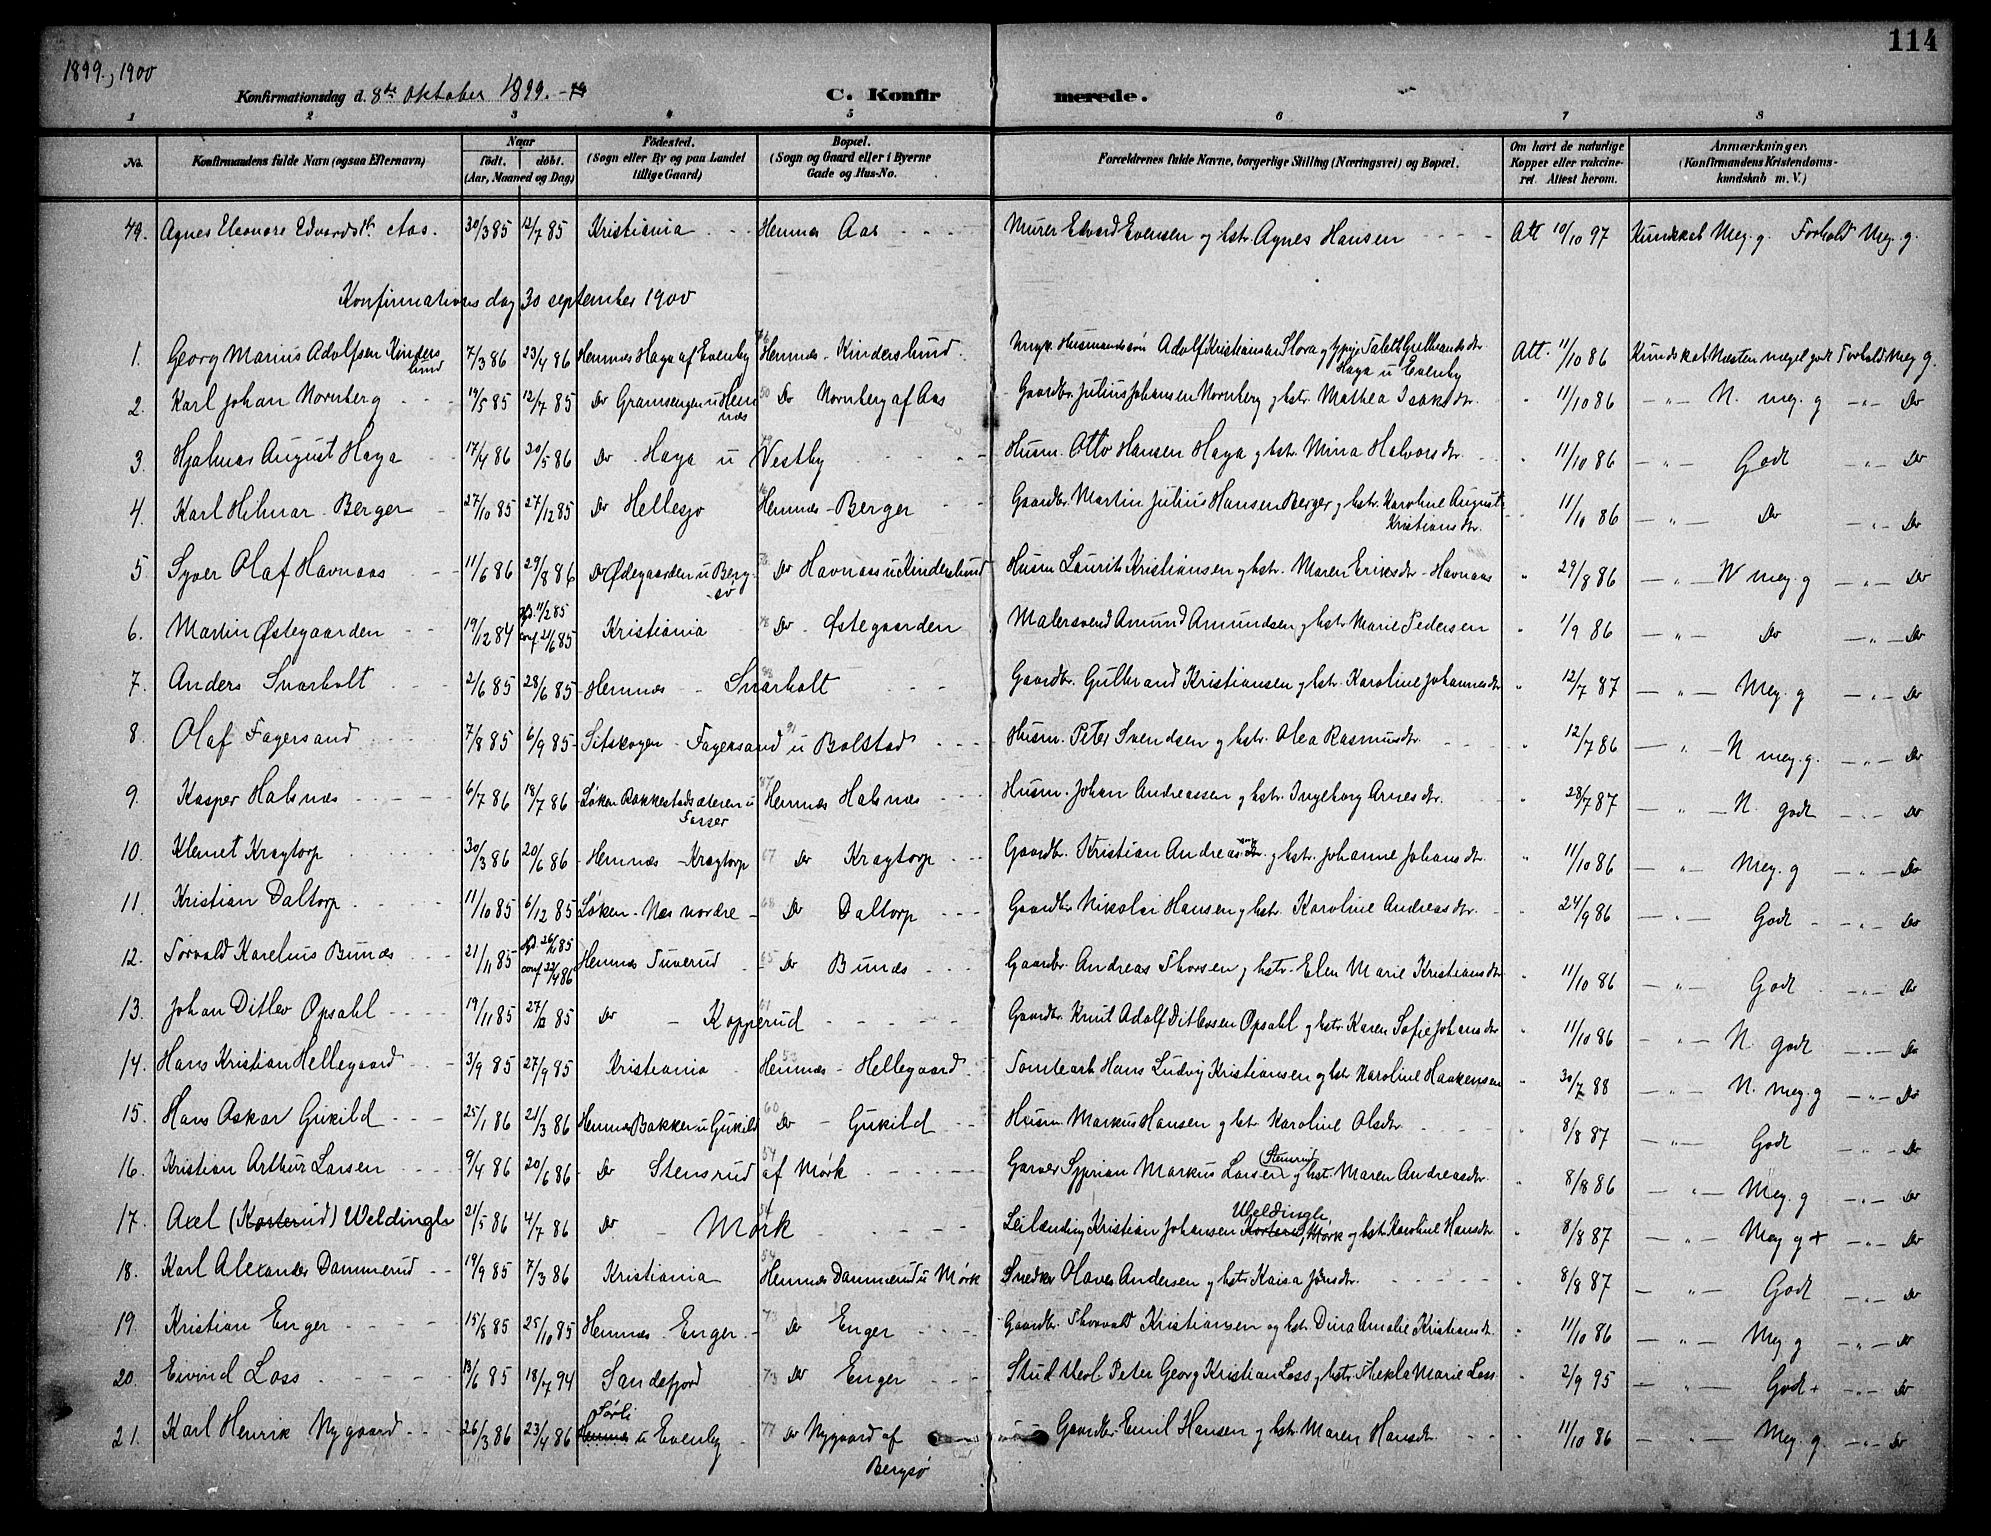 114
1899, 1900
Konfirmationsdag d. 8de oktober 1899.
C. Konfirmerede.
1 2 3 4 5 6 7 8
No. Konfirmandens fulde Navn (ogsaa Efternavn) Naar født. døbt. (Aar, Maaned og Dag) Fødested. (Sogn eller By og paa Landet tillige Gaard) Bopæl. (Sogn og Gaard eller i Byerne Gade og Hus-No. Forældrenes fulde Navne, borgerlige Stilling (Næringsvei) og Bopæl. Om havt de naturlige Kopper eller vakcineret. Attest herom. Anmærkninger. (Konfirmandens Kristendomskundskab m. V.)
79. Agnes Eleonore Edvardsdtr. Aas. 30/3 85 12/7 85 Kristiania Hemnæs Aas Murer Edvard Evensen og hstr. Agnes Hansen Att 10/10 97 Kundskab Meg. g. Forhold Meg. g.
Konfirmationsdag 30 september 1900
1. Georg Marius Adolfsen Kinderslund 7/3 86 23/4 86 Hemnæs Haga af Evenby Hemnæs - Kinderslund. Ungk. Husmandssøn Adolf Kristiansen Slora og pige Talette Gulbrandsdtr. Haga u Evenby Att. 11/10 86 Kundskab Næsten meget godt Forhold Meg g.
2. Karl Johan Nornberg 19/5 85 12/7 85 Do Gramsengen u Hemnæs 50 Do Nornberg af Aas Gaardbr. Julius Johansen Nornberg og hstr. Mathea Isaksdtr. " 11/10 86 - " - N. meg. g - " - Do
3. Hjalmar August Haga 17/4 86 30/5 86 Do Haga u Vestby Husm. Otto Hansen Haga og hstr. Mina Halvorsdtr. " 11/10 86 - " - Godt - " - Do
4. Karl Hilmar Berger 27/10 85 27/12 85 Do Hellesjø Hemnæs - Berger Gaardbr. Martin Julius Hansen Berger og hstr. Karoline Auguste Kristiansdtr. " 11/10 86 - " - Do - " - Do
5 Syver Olaf Havnaas 11/6 86 29/8 86 Do Ødegaarden u Bergsø Do Havnaas u Kinderslund Husm Laurits Kristiansen og hstr. Maren Eriksdtr - Havnaas " 29/8 86 - " - N meg. g - " - Do
6. Martin Østegaarden 19/12 84 11/2 85 conf 21/6 85 Kristiania Do - Østegaarden Malersvend Amund Amundsen og hstr Marie Pedersen " 1/9 86 - " - Do - " - Do
7. Anders Snarholt 2/6 85 28/6 85 Hemnæs - Snarholt Gaardbr. Gulbrand Kristiansen og hstr. Karoline Johannesdtr " 12/7 87 - " - Meg. g - " - Do
8. Olaf Fagersand 7/8 85 6/9 85 Sitskogen - Fagersand u Bolstad Husm. Peter Svendsen og hstr. Olea Rasmusdtr " 12/7 86 - " - N meg. g. - " - Do
9. Kasper Halsnæs 6/7 86 18/7 86 Løken Bakkestadsæteren u Fosser 87 Hemnæs Halsnæs Husm. Johan Andreassen og hstr. Ingeborg Arnesdtr. " 28/7 87 - " - N. godt - " - Do
10. Klemet Kragtorp 30/3 86 20/6 86 Hemnæs - Kragtorp 67 Do Kragtorp Gaardbr. Kristian Andreassen og hstr. Johanne Johansdtr. " 11/10 86 - " - Meg. g - " - Do
11. Kristian Daltorp 11/10 85 6/12 85 Løken - Nes nordre 68 Do Daltorp Gaardbr Nikolai Hansen og hstr. Karoline Andreasdtr. " 24/9 86 - " - Godt - " - Do
12. Torvald Karelius Bunæs 21/11 85 26/11 85 conf 22/4 86 Hemnæs Tuverud 65 Do Bunæs Gaardbr. Andreas Thorsen og hstr. Elen Marie Kristiansdtr " 11/10 86 - " - Godt - " - Do
13. Johan Ditlev Opsahl 19/11 85 27/12 85 Do - Kopperud Gaardbr. Knut Adolf Ditlevsen Opsahl og hstr. Karen Sofie Johansdtr " 11/10 86 - " - N. godt - " - Do
14. Hans Kristian Hellegaard 3/9 85 27/9 85 Kristiania 53 Hemnæs - Hellegaard Tomtearb Hans Ludvig Kristiansen og hstr Karoline Haakensen " 30/7 88 - " - N. meg. g - " - Do
15. Hans Oskar Gukild 25/1 86 21/3 86 Hemnæs Bakken u Gukild 60 Do - Gukild Husm. Markus Hansen og hstr. Karoline Olsdtr " 8/8 87 - " - Godt - " - Do
16. Kristian Arthur Larsen 9/4 86 20/6 86 Do Stensrud af Mørk 54 Garver Syprian Markus Larsen (Stensrud) og hst. Maren Andreasdtr. " 8/8 86 - " - Meg. g - " - Do
17. Axel (Korterud) Weldingh 21/5 86 4/7 86 Do - Mørk Leilænding Kristian Johansen Korterud Weldingh, Mørk og hstr Karoline Hansdtr " 8/8 87 - " - Meg g + - " - Do
18. Karl Alexander Dammerud 19/9 85 7/3 86 Kristiania 54 Hemnæs Dammerud u Mørk Snedker Olaves Andersen og hstr Kaisa Jonsdtr. " 8/8 87 - " - Godt - " - Do
19. Kristian Enger 15/8 85 25/10 85 Hemnæs - Enger 73 Do Enger Gaardbr. Thorvald Kristiansen og hstr. Dina Amalie Kristiansdtr. " 11/10 86 - " - Meg g - " - Do
20. Eivind Loss 13/6 85 18/7 94 Sandefjord 73 Do Enger Stud theol Peter Georg Kristian Loss og hstr. Thekla Marie Loss " 2/9 95 - " - Godt + - " - Do
21. Karl Henrik Nygaard 26/3 86 23/4 86 Hemnæs Sørli u Evenby 77 Do Nygaard af Bergsø Gaardbr. Emil Hansen og hstr. Maren Hansdtr. " 11/10 86 - " - Meg. g. - " - Do